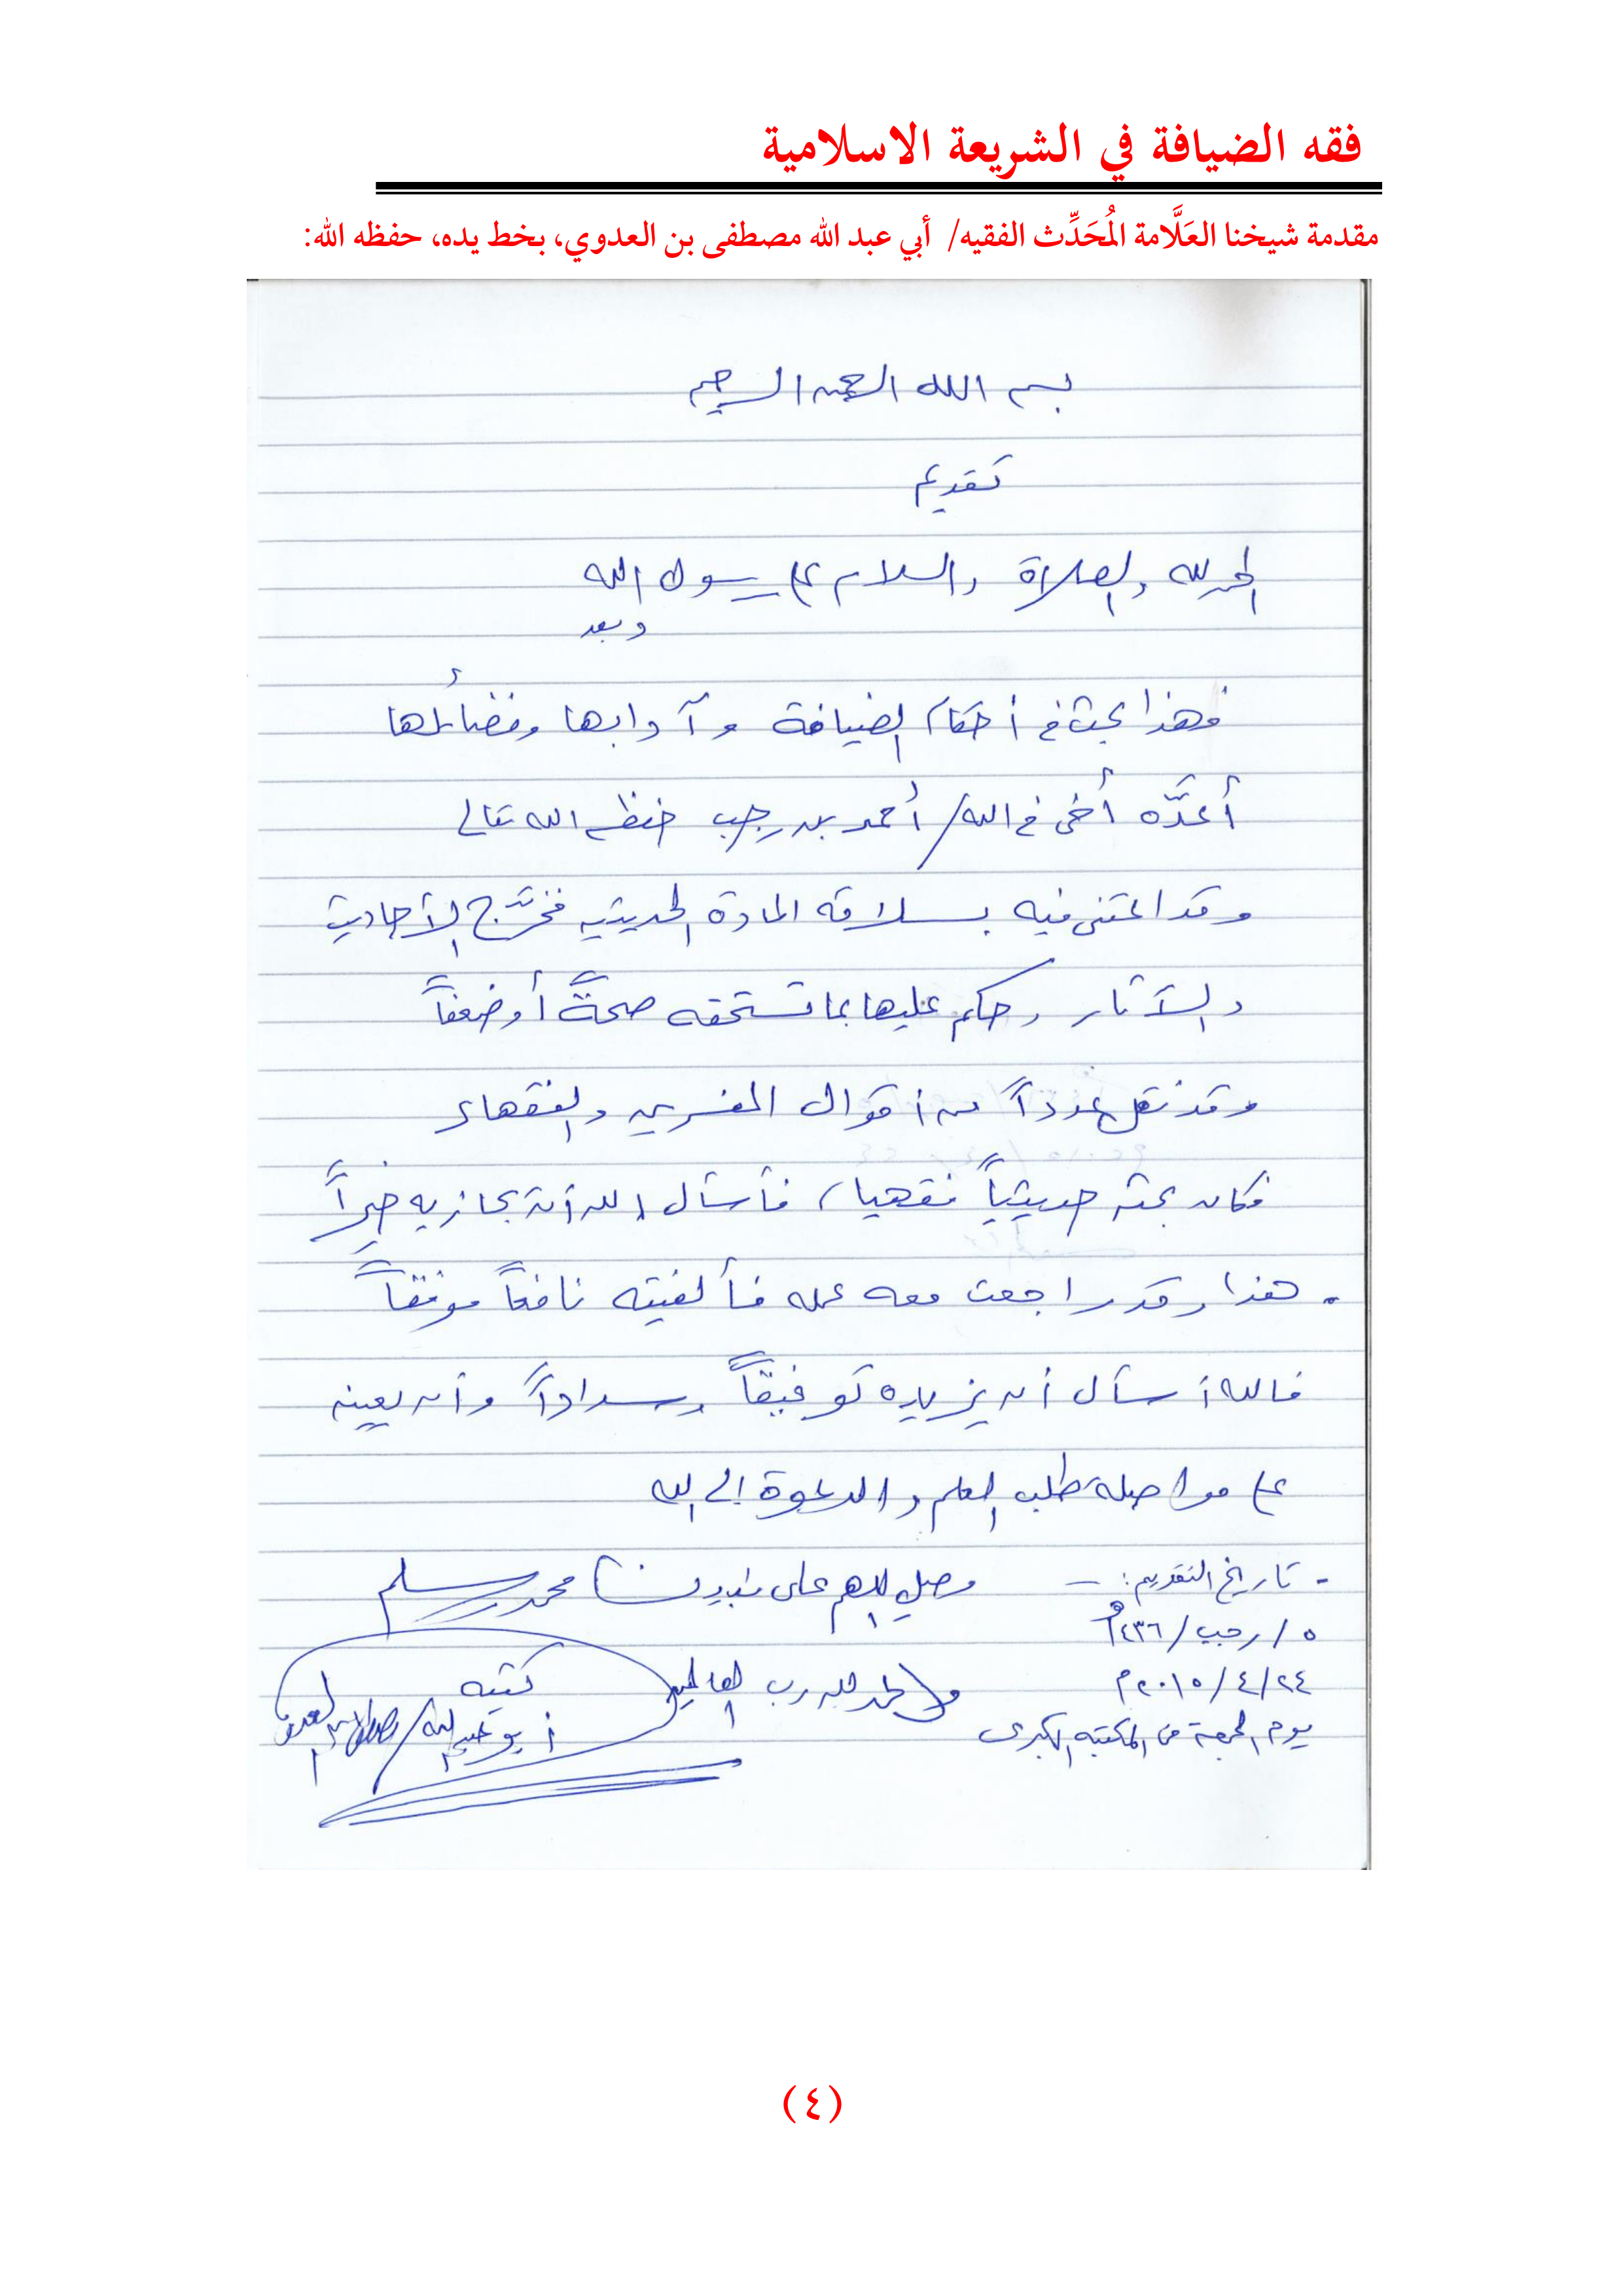 فقه الضيافة في الشريعة الاسلامية
مقدمة شيخنا العَلَّامة المُحَدِّث الفقيه/ أبي عبد الله مصطفى بن العدوي، بخط يده، حفظه الله:
بسم الله الرحمن الرحيم
تقديم
الحمد لله والصلاة والسلام على رسول الله
وبعد
فهذا بحث في أحكام الضيافة وآدابها وفضائلها
أعدَّه أخي في الله/ أحمد بن رجب حفظه الله تعالى
وقد اعتنى فيه بسلامة المادة الحديثية فخرَّج الأحاديث
والآثار وحكم عليها بما تستحقه صحةً أو ضعفاً
وقد نقل عدداً من أقوال المفسرين والفقهاء
فكان بحثه حديثياً فقهيا، فأسأل الله أن يجازيه خيراً
. هذا وقد راجعت معه عمله فألفيته نافعاً موفقاً
فالله أسأل أن يزيده توفيقاً وسداداً وأن يعينه
على مواصلة طلب العلم والدعوة إلى الله
وصلِّ اللهم على نبينا محمد وسلم
والحمد لله رب العالمين
- تاريخ التقديم: -
٥ / رجب / ١٤٣٦هـ
٢٤ / ٤ / ٢٠١٥م
يوم الجمعة من المكتبة الكبرى
كتبه
أبو عبد الله/ مصطفى بن العدوي
(٤)